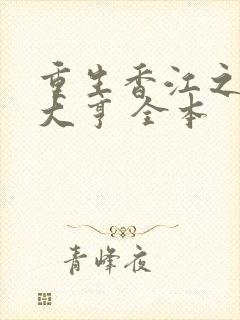 重生香江之
大亨 全本
青峰夜